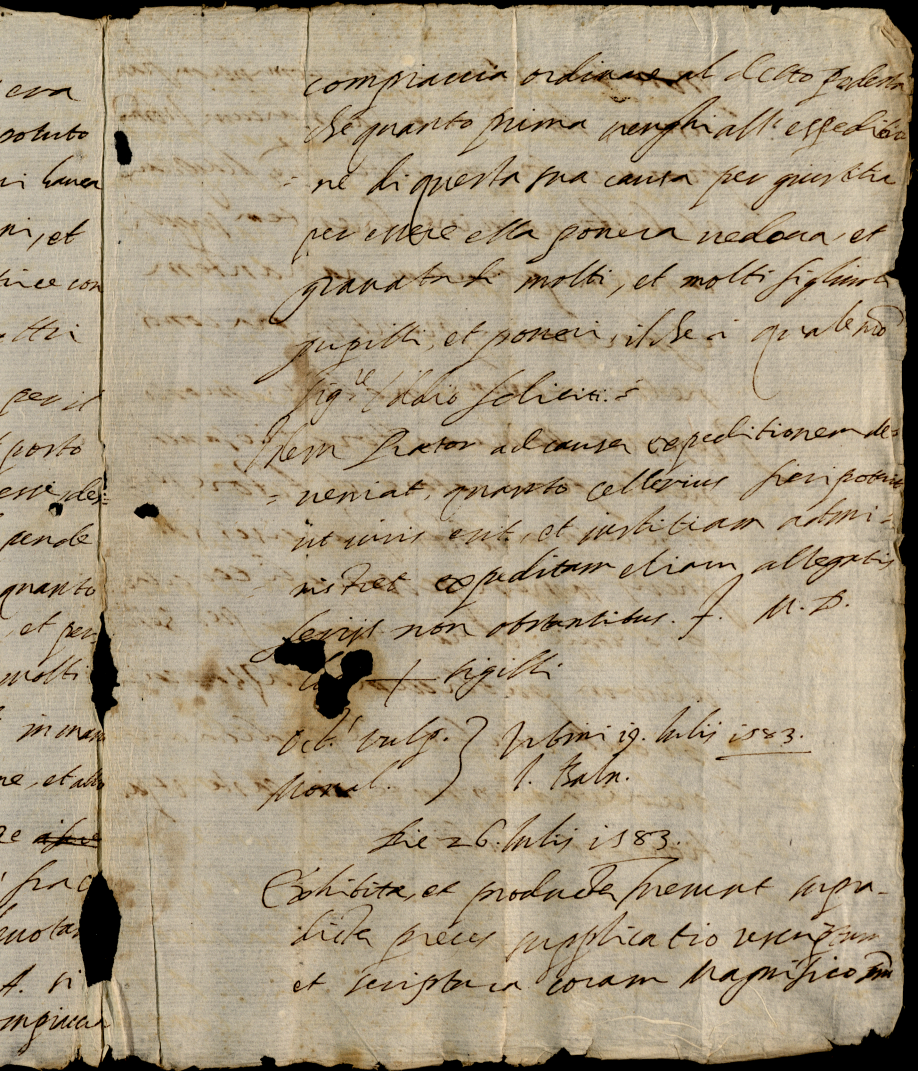 era
potuto
havea
ni, et
trice con
altri
per il
porto
esse des=
pende
quanto
, et per
molti
in man
ne, et
re
frac
A. si
compiaccia
compiaccia ordinare al detto podestà
che quanto prima venghi all' espeditio
= ne di questa sua causa per giustitia
per essere ella povera vedova, et
gravata di molti, et molti figliuoli
pupilli, et poveri, il che a qual
Sig.re Iddio feliciti.=
Idem Praetor ad causae expeditionem de=
= veniat, quanto cellerius fieri poterit
ut iuris erit, et iustitiam admi=
= nistret expeditam etiam allegatis
feriis non obstantibus. f. M. D.
+ sigilli
Oct. Vulp. } Urbini 19. Iulii 1583.
Monal. } I. Baln.
Die 26. Iulii 1583.
Exhibita, et producta fuerunt supra-
dicta preces supplicatio rescriptum
et scriptura coram Magnifico